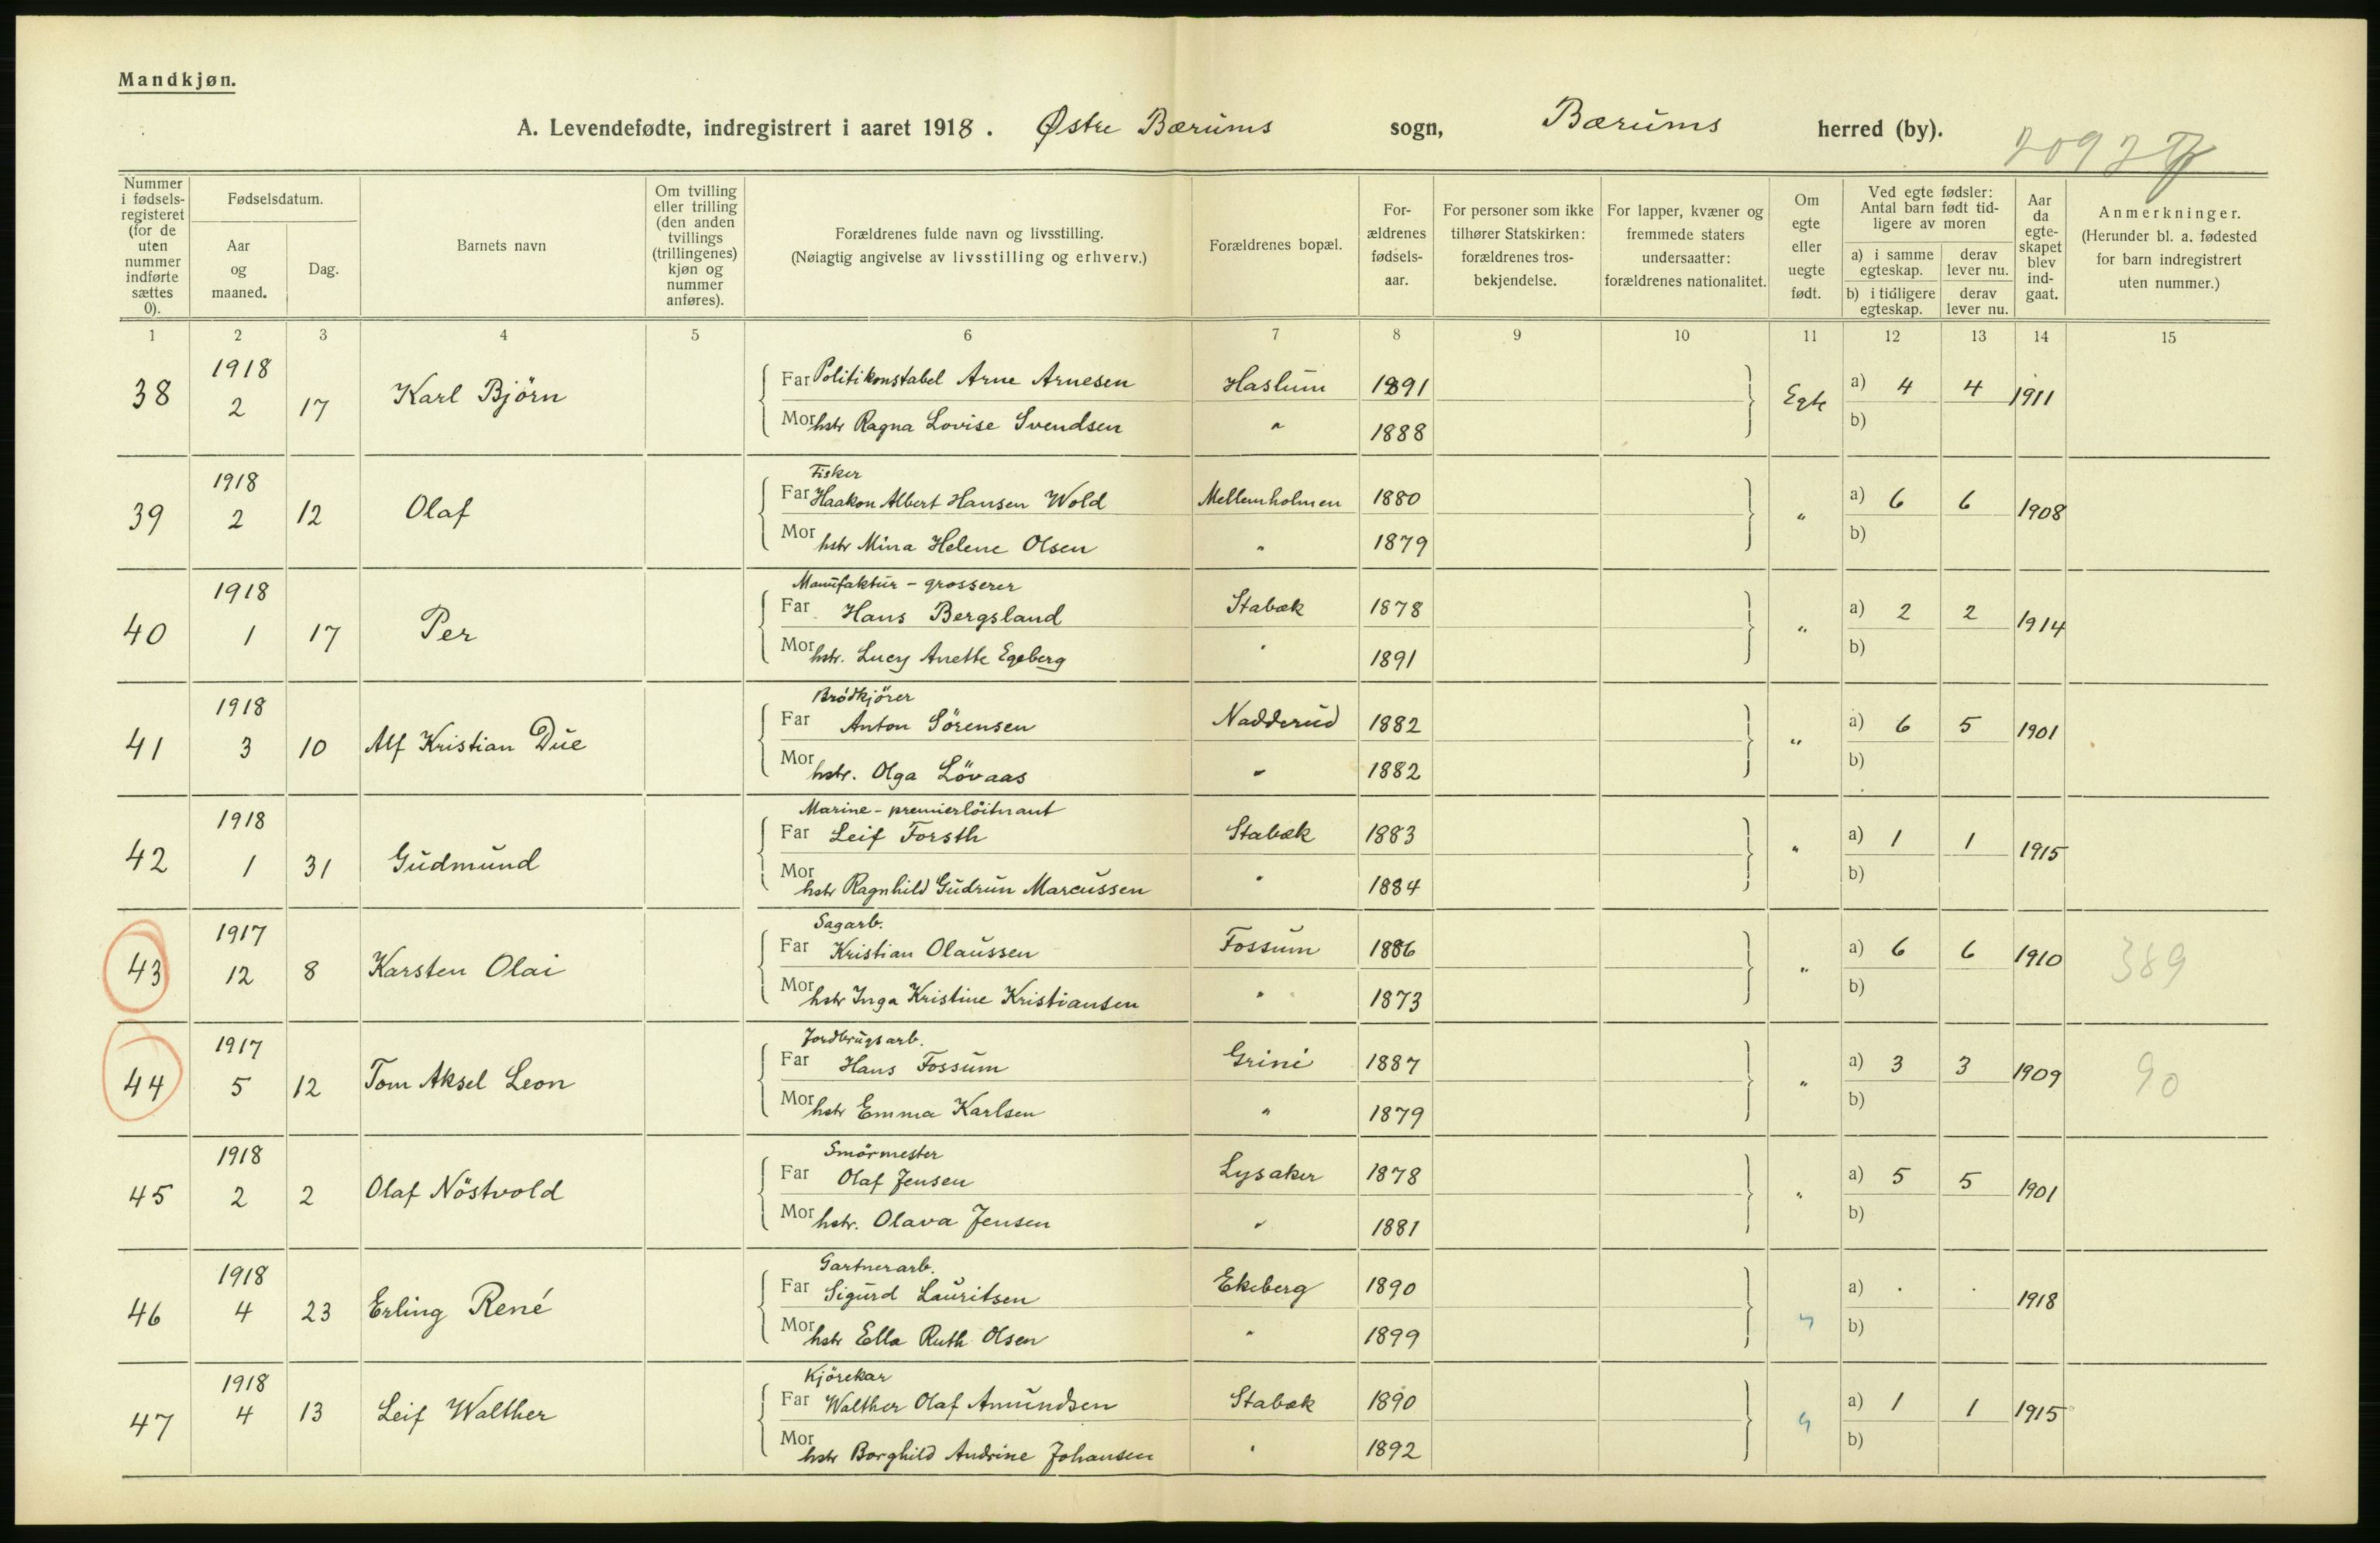 Mandkjøn.
A. Levendefødte, indregistrert i aaret 1918. Østre Bærums sogn, Bærums herred (by).
Nummer i fødsels-registeret (for de uten nummer indførte sættes 0).
Fødselsdatum.
Aar og maaned.
Dag.
Barnets navn
Om tvilling eller trilling (den anden tvillings (trillingenes) kjøn og nummer anføres).
Forældrenes fulde navn og livsstilling.
(Nøiagtig angivelse av livsstilling og erhverv.)
Forældrenes bopæl.
For-ældrenes fødsels-aar.
For personer som ikke tilhører Statskirken: forældrenes tros-bekjendelse.
For lapper, kvæner og fremmede staters undersaatter: forældrenes nationalitet.
Om egte eller uegte født.
Ved egte fødsler: Antal barn født tid-ligere av moren
a) i samme egteskap.
derav lever nu.
b) i tidligere egteskap.
derav lever nu.
Aar da egte-skapet blev ind-gaat.
Anmerkninger.
(Herunder bl. a. fødested for barn indregistrert uten nummer.)
1 2 3 4 5 6 7 8 9 10 11 12 13 14 15
38 1918 2 17 Karl Björn
Far Politikonstabel Arne Arnesen Haslum 1891 Egte a) 4 4 1911
Mor hstr Ragna Lovise Svendsen " 1888 b)
39 1918 2 12 Olaf
Fisker
Far Haakon Albert Hansen Wold Mellemholmen 1880 " a) 6 6 1908
Mor hstr Mina Helene Olsen " 1879 b)
40 1918 1 17 Per
Manufaktur - grosserer
Far Hans Bergsland Stabæk 1878 " a) 2 2 1914
Mor hstr. Lucy Anette Egeberg " 1891 b)
41 1918 3 10 Alf Kristian Due
Brödkjörer
Far Anton Sörensen Nadderud 1882 " a) 6 5 1901
Mor hstr. Olga Lövaas " 1882 b)
42 1918 1 31 Gudmund
Marine - premierlöitnant
Far Leif Forsth Stabæk 1883 " a) 1 1 1915
Mor hstr Ragnhild Gudrun Marcussen " 1884 b)
43 1917 12 8 Karsten Olai
Sagarb.
Far Kristian Olaussen Fossum 1886 " a) 6 6 1910 389
Mor hstr Inga Kristine Kristiansen " 1873 b)
44 1917 5 12 Tom Aksel Leon
Jordbrugsarb.
Far Hans Fossum Grini 1887 " a) 3 3 1909 90
Mor hstr Emma Karlsen " 1879 b)
45 1918 2 2 Olaf Nöstvold
Smörmester
Far Olaf Jensen Lysaker 1878 " a) 5 5 1901
Mor hstr. Olava Jensen " 1881 b)
46 1918 4 23 Erling René
Gartnerarb.
Far Sigurd Lauritsen Ekeberg 1890 " a) . . 1918
Mor hstr Ella Ruth Olsen " 1899 b)
47 1918 4 13 Leif Walther
Kjörekar
Far Walther Olaf Amundsen Stabæk 1890 " a) 1 1 1915
Mor hstr Borghild Andrine Johansen " 1892 b)